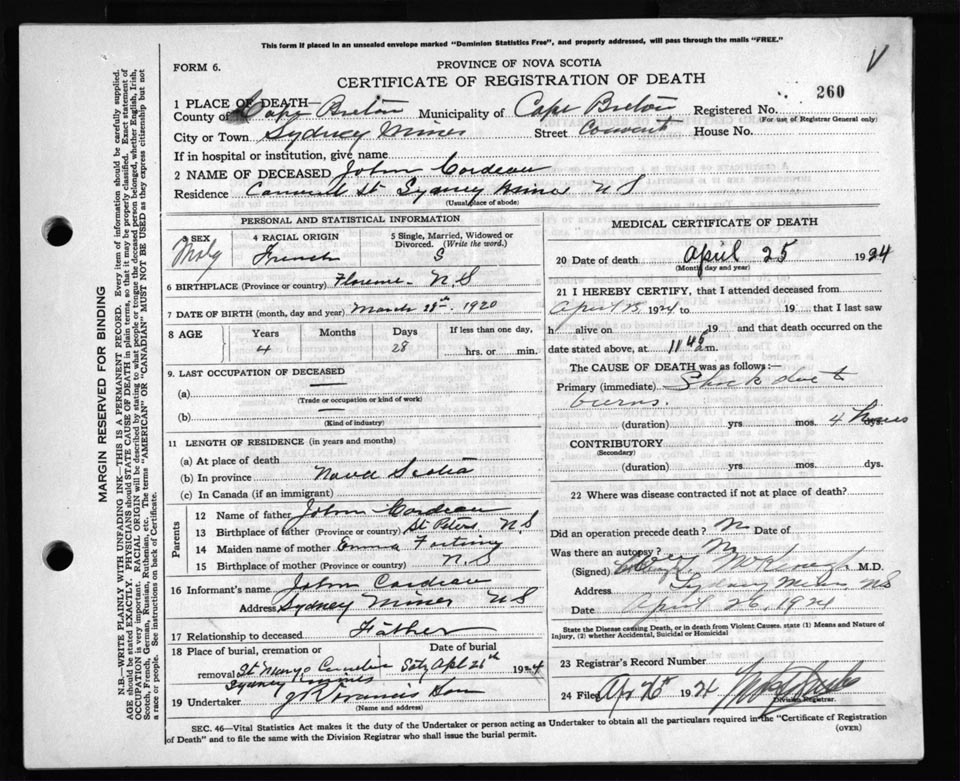 This form if placed in an unsealed envelope marked "Dominion Statistics Free", and properly addressed, will pass through the mails "FREE."
FORM 6.
PROVINCE OF NOVA SCOTIA
CERTIFICATE OF REGISTRATION OF DEATH
V
1 PLACE OF DEATH—
County of Cape Breton Municipality of Cape Breton Registered No. 260
(For use of Registrar General only)
City or Town Sydney Mines Street Convent House No.
If in hospital or institution, give name
2 NAME OF DECEASED John Cordeau
Residence St Sydney Mines N S
(Usual place of abode)
PERSONAL AND STATISTICAL INFORMATION
3 SEX
4 RACIAL ORIGIN
5 Single, Married, Widowed or Divorced. (Write the word.)
French
S
6 BIRTHPLACE (Province or country) Florence N.S
7 DATE OF BIRTH (month, day and year) March 28th 1920
8 AGE Years Months Days If less than one day,
4 28 hrs. or min.
9. LAST OCCUPATION OF DECEASED
(a) —
(Trade or occupation or kind of work)
(b) —
(Kind of industry)
11 LENGTH OF RESIDENCE (in years and months)
(a) At place of death
(b) In province Nova Scotia
(c) In Canada (if an immigrant)
Parents
12 Name of father John Cordeau
13 Birthplace of father (Province or country) St Peters N.S
14 Maiden name of mother Emma
15 Birthplace of mother (Province or country) N.S
16 Informant's name John Cordeau
Address Sydney Mines N S
17 Relationship to deceased Father
18 Place of burial, cremation or removal Date of burial
St Sat Apl 26th 1924
Sydney Mines
19 Undertaker
(Name and address)
MEDICAL CERTIFICATE OF DEATH
20 Date of death April 25 1924
(Month day and year)
21 I HEREBY CERTIFY, that I attended deceased from
April 25 1924 to 19 that I last saw
h alive on 19 and that death occurred on the
date stated above, at 11 45 a.m.
The CAUSE OF DEATH was as follows:—
Primary (immediate) Shock due to
burns.
(duration) yrs. mos. 4 hours dys.
CONTRIBUTORY
(Secondary)
(duration) yrs. mos. dys.
22 Where was disease contracted if not at place of death?
Did an operation precede death? N Date of
Was there an autopsy? No
(Signed) M.D.
Address Sydney Mines NS
Date April 26, 1924
State the Disease causing Death, or in death from Violent Causes. state (1) Means and Nature of
Injury, (2) whether Accidental, Suicidal or Homicidal
23 Registrar's Record Number
24 Filed Apr 26th 1924
Division Registrar.
SEC. 46—Vital Statistics Act makes it the duty of the Undertaker or person acting as Undertaker to obtain all the particulars required in the "Certificate of Registration
of Death" and to file the same with the Division Registrar who shall issue the burial permit.
(OVER)
MARGIN RESERVED FOR BINDING
N.B.—WRITE PLAINLY WITH UNFADING INK—THIS IS A PERMANENT RECORD. Every item of information should be carefully supplied.
AGE should be stated EXACTLY. PHYSICIANS should STATE CAUSE OF DEATH in plain terms, so that it may be properly classified. Exact statement of
OCCUPATION is very important. RACIAL ORIGIN will be described by stating to what people or tongue the deceased person belonged, whether English, Irish,
Scotch, French, German, Russian, Ruthenian, etc. The terms "AMERICAN" OR "CANADIAN" MUST NOT BE USED as they express citizenship but not
a race or people. See instructions on back of Certificate.